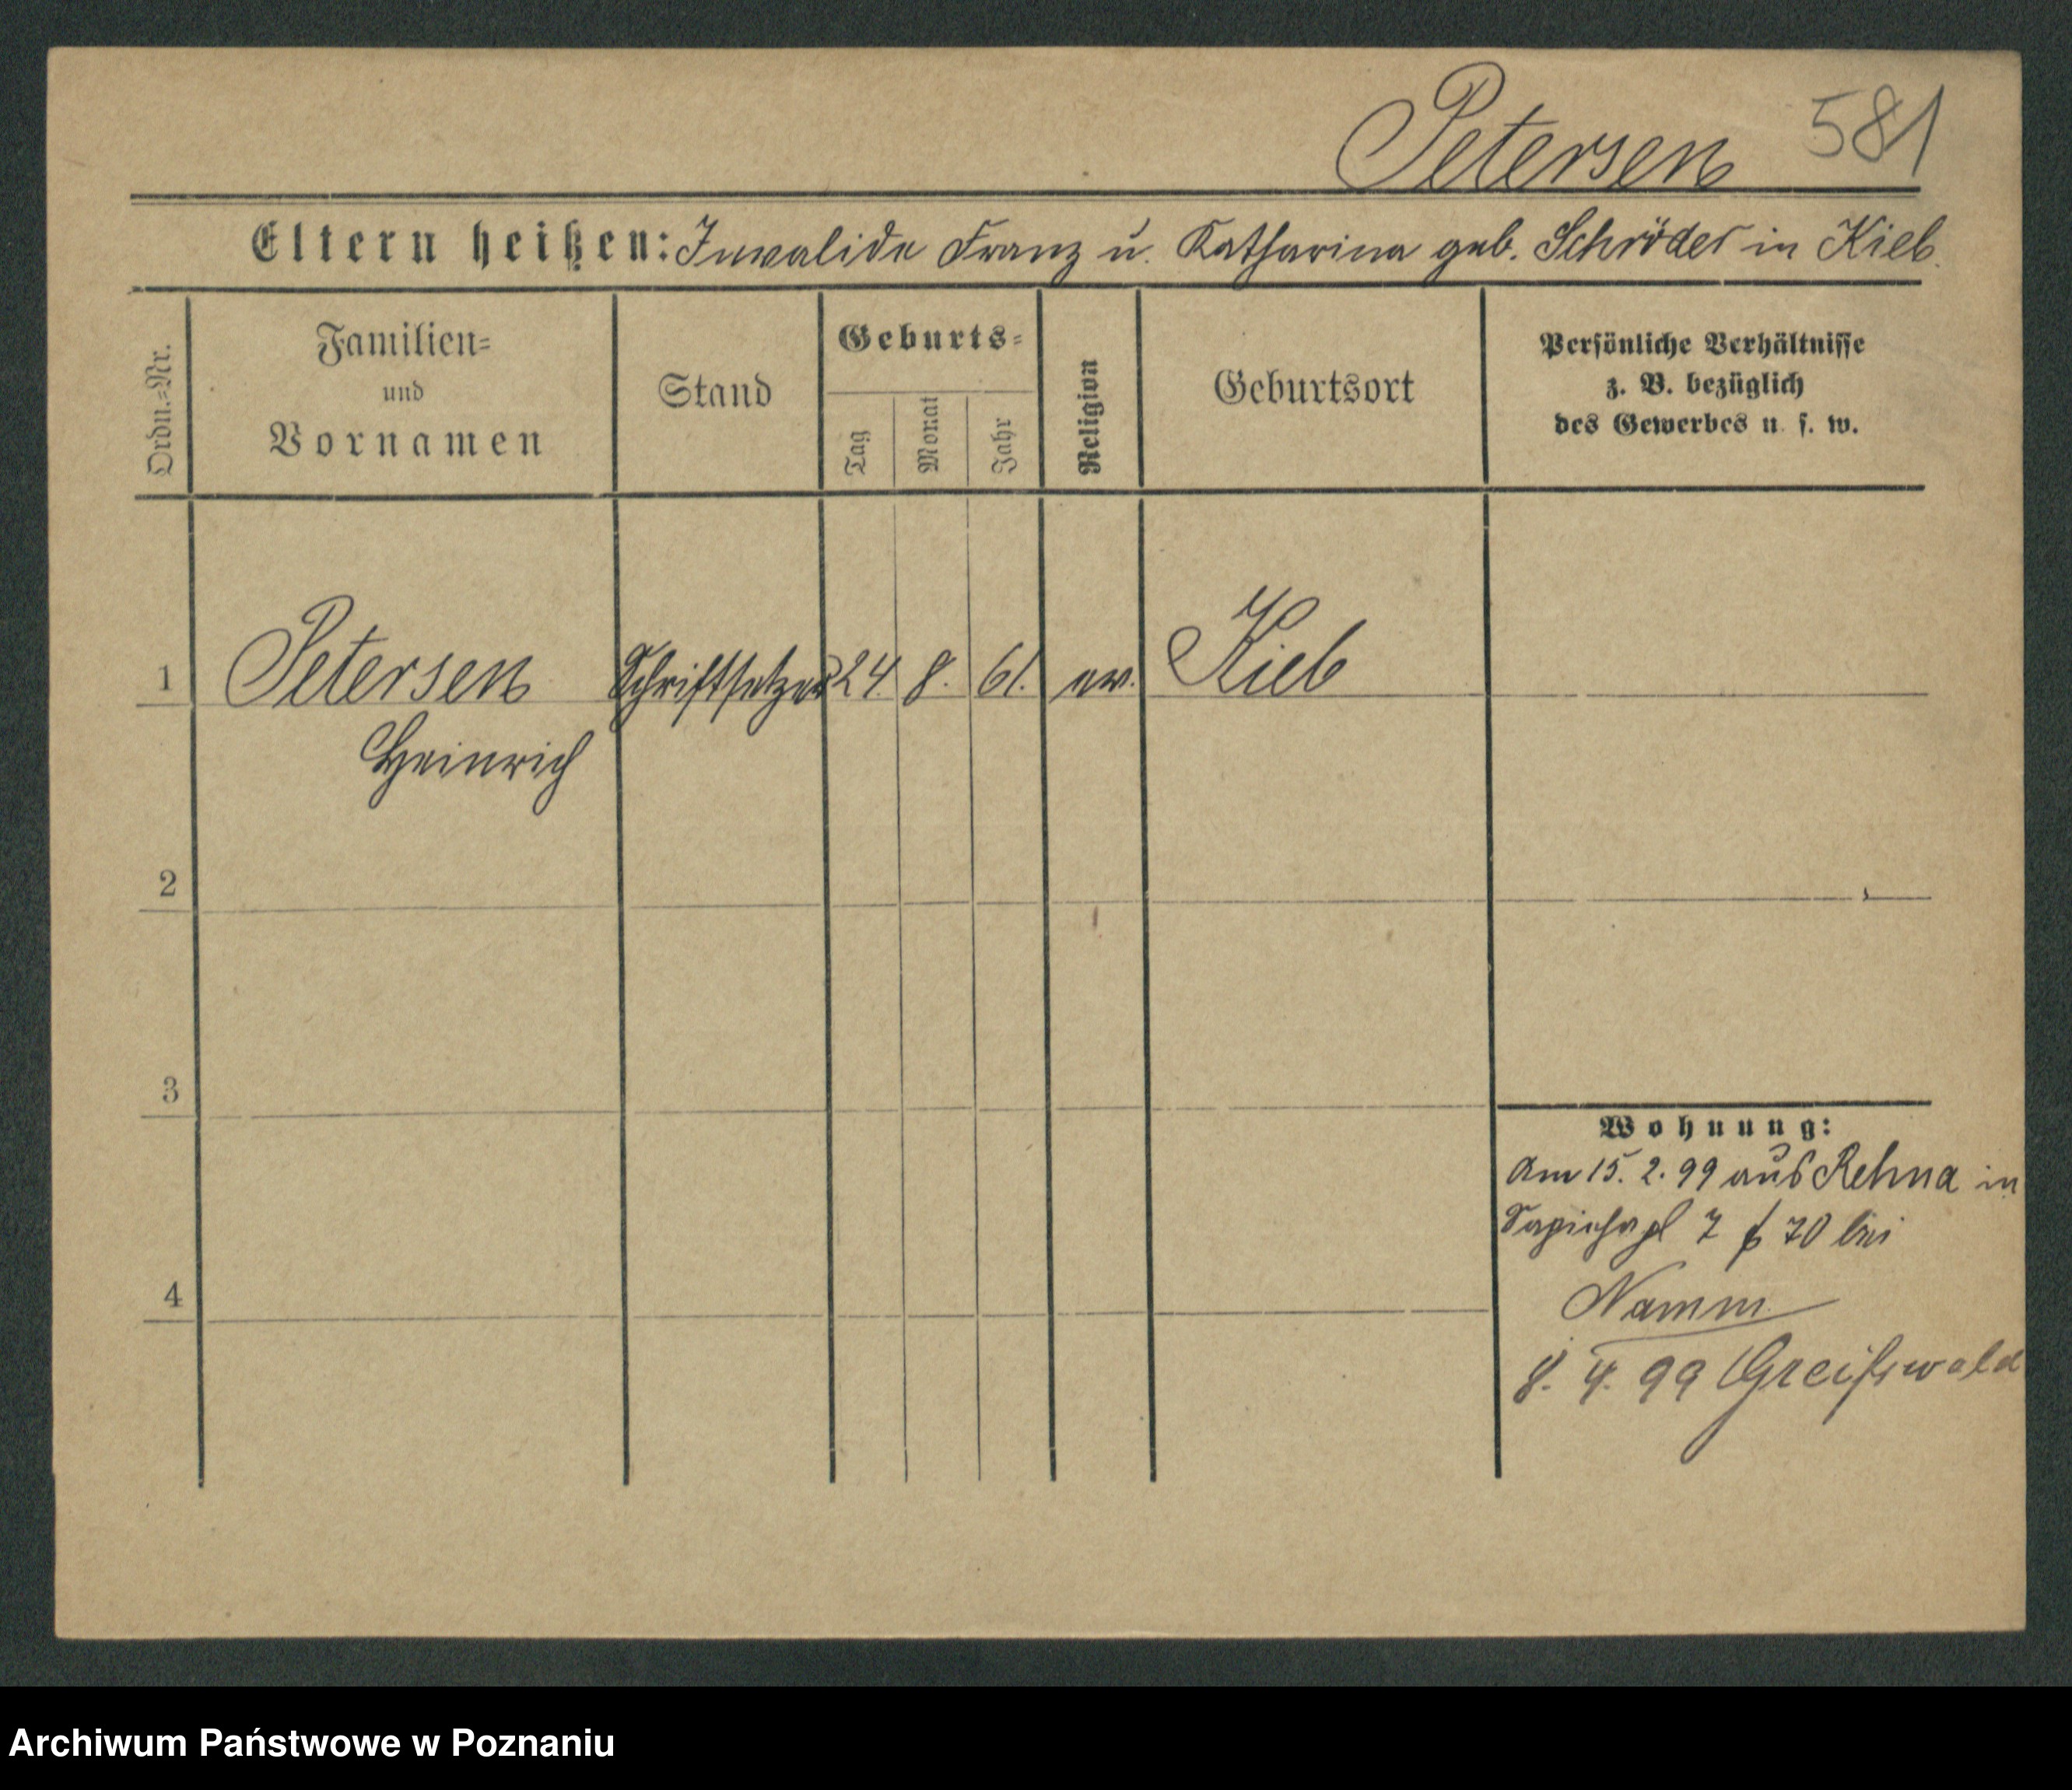 Petersen 581
Eltern heißen: Invalide Franz u. Katharina geb. Schröder in Kieb.
Ordn.=Nr.
Familien=
und
Vornamen
Stand
Geburts=
Tag
Monat
Jahr
Religion
Geburtsort
Persönliche Verhältnisse
z. B. bezüglich
des Gewerbes u. s. w.
1 Petersen Schriftsetzer 24. 8. 61. ev. Kieb
Heinrich
2
3
4
Wohnung:
Am 15. 2. 99 aus Rehna in
Sapiehapl 7 70 bei
Namm
8. 4. 99 Greifswald
Archiwum Państwowe w Poznaniu